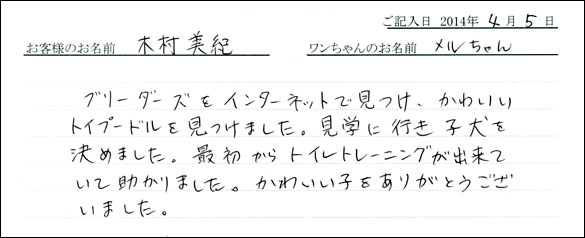 ご記入日 2014年 4 月 5 日
お客様のお名前 木村美紀 ワンちゃんのお名前 メルちゃん
ブリーダーズをインターネットで見つけ、かわいい
トイプードルを見つけました。見学に行き子犬を
決めました。最初からトイレトレーニングが出来て
いて助かりました。かわいい子をありがとうござ
いました。